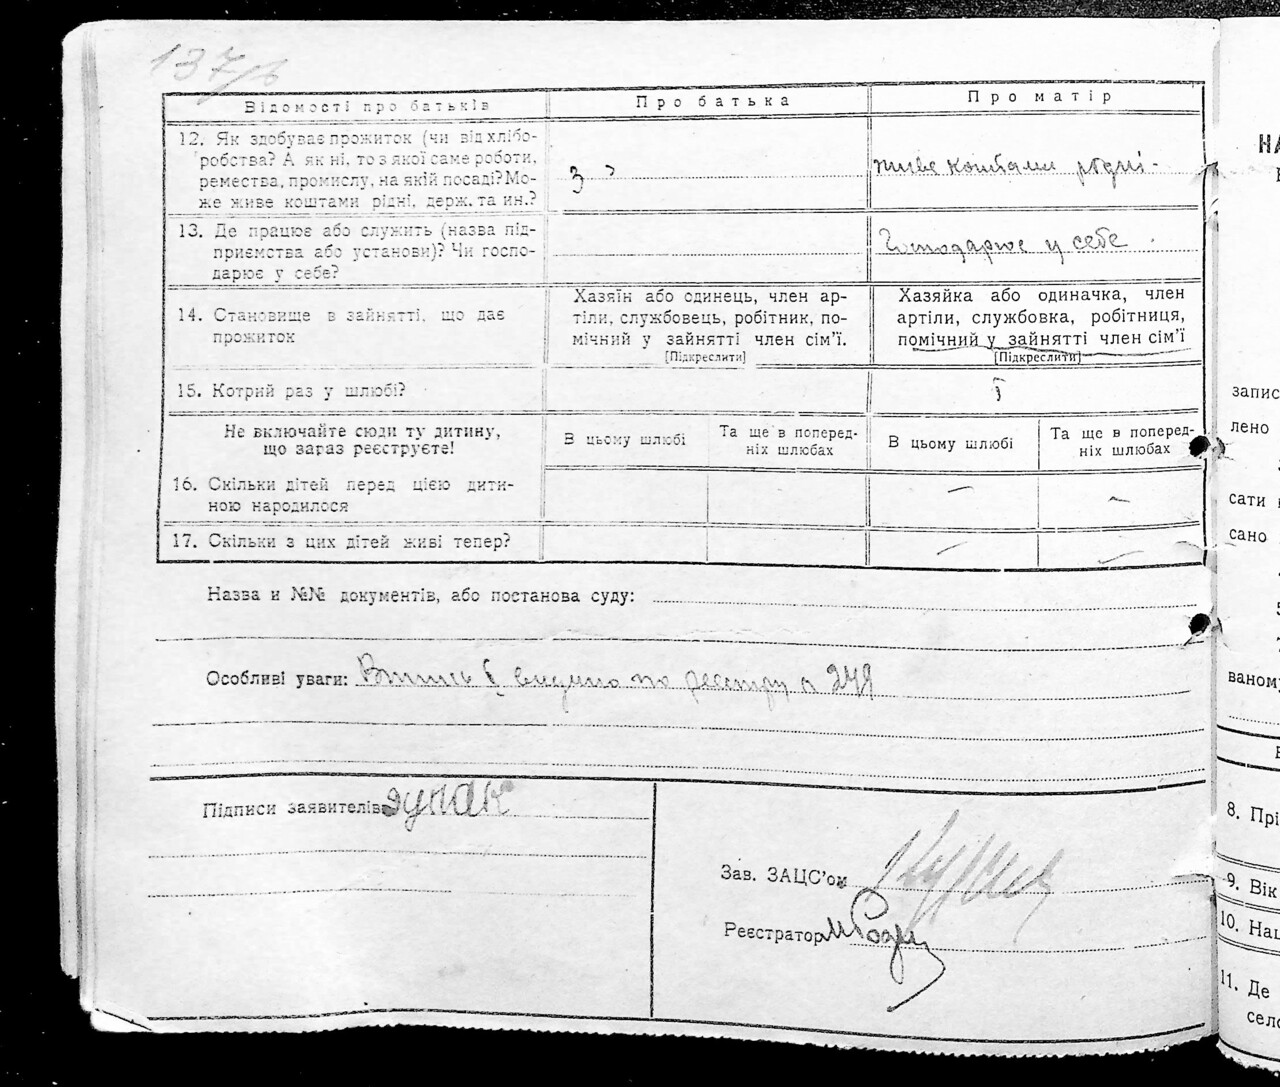 137/б
Відомості про батьків
Про батька
Про матір
12. Як здобуває прожиток (чи від хлібо-
робства? А як ні, то з якої саме роботи,
ремества, промислу, на якій посаді? Мо-
же живе коштами рідні, держ. та ин.?
живе коштами рідні
13. Де працює або служить (назва під-
приємства або установи)? Чи госпо-
дарює у себе?
Господарює у себе
14. Становище в зайнятті, що дає
прожиток
Хазяїн або одинець, член ар-
тіли, службовець, робітник, по-
мічний у зайнятті член сім’ї.
[Підкреслити]
Хазяйка або одиначка, член
артіли, службовка, робітниця,
помічний у зайнятті член сім’ї
[Підкреслити]
15. Котрий раз у шлюбі?
I
Не включайте сюди ту дитину,
що зараз реєструєте!
В цьому шлюбі
Та ще в поперед-
ніх шлюбах
В цьому шлюбі
Та ще в поперед-
ніх шлюбах
16. Скільки дітей перед цією дити-
ною народилося
— —
17. Скільки з цих дітей живі тепер?
— —
Назва и №№ документів, або постанова суду:
Особливі уваги: видано по реєстру 249
Підписи заявителів
Зав. ЗАЦС’ом
Реєстратор
НА
запис
лено
сати
сано
ваному
8. Прі
9. Вік
10. Нац
11. Де
село